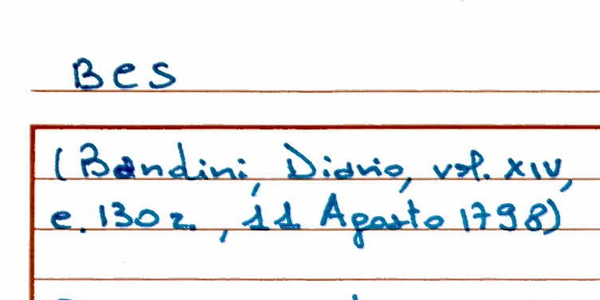 Bes
(Bandini, Diario, vol. XIV,
c. 130 r., 11 Agosto 1798)